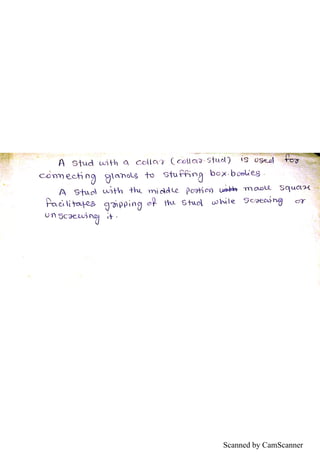 A stud with a collar (collar stud) is used for
connecting glands to stuffing box bodies.
A stud with the middle portion with made square
facilitates gripping of the stud while screwing or
unscrewing it.
Scanned by CamScanner